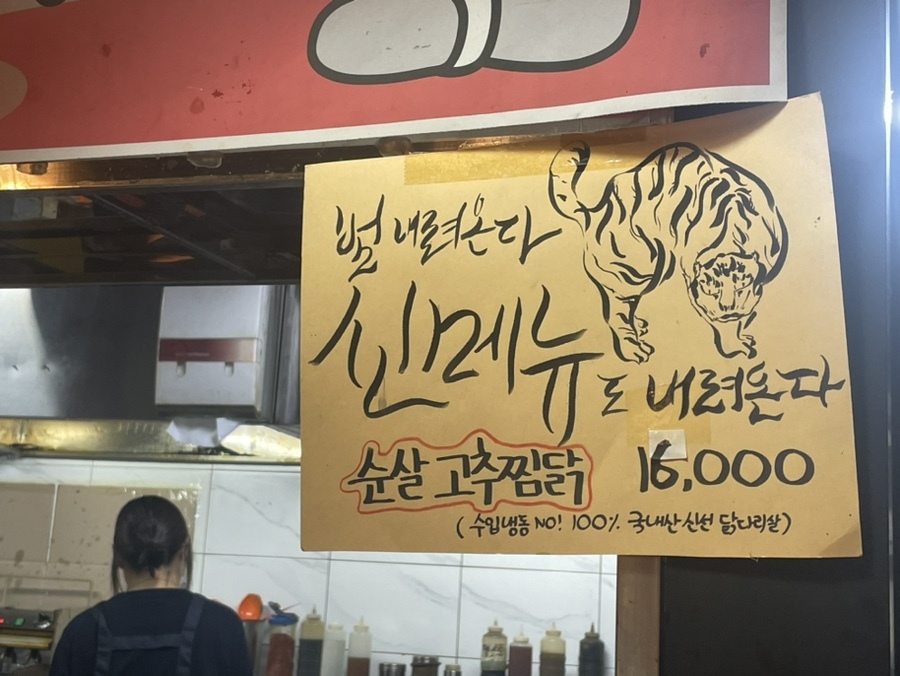 범 내려온다
신메뉴도 내려온다
순살 고추찜닭 16,000
(수입냉동 NO! 100% 국내산 신선 닭다리살)